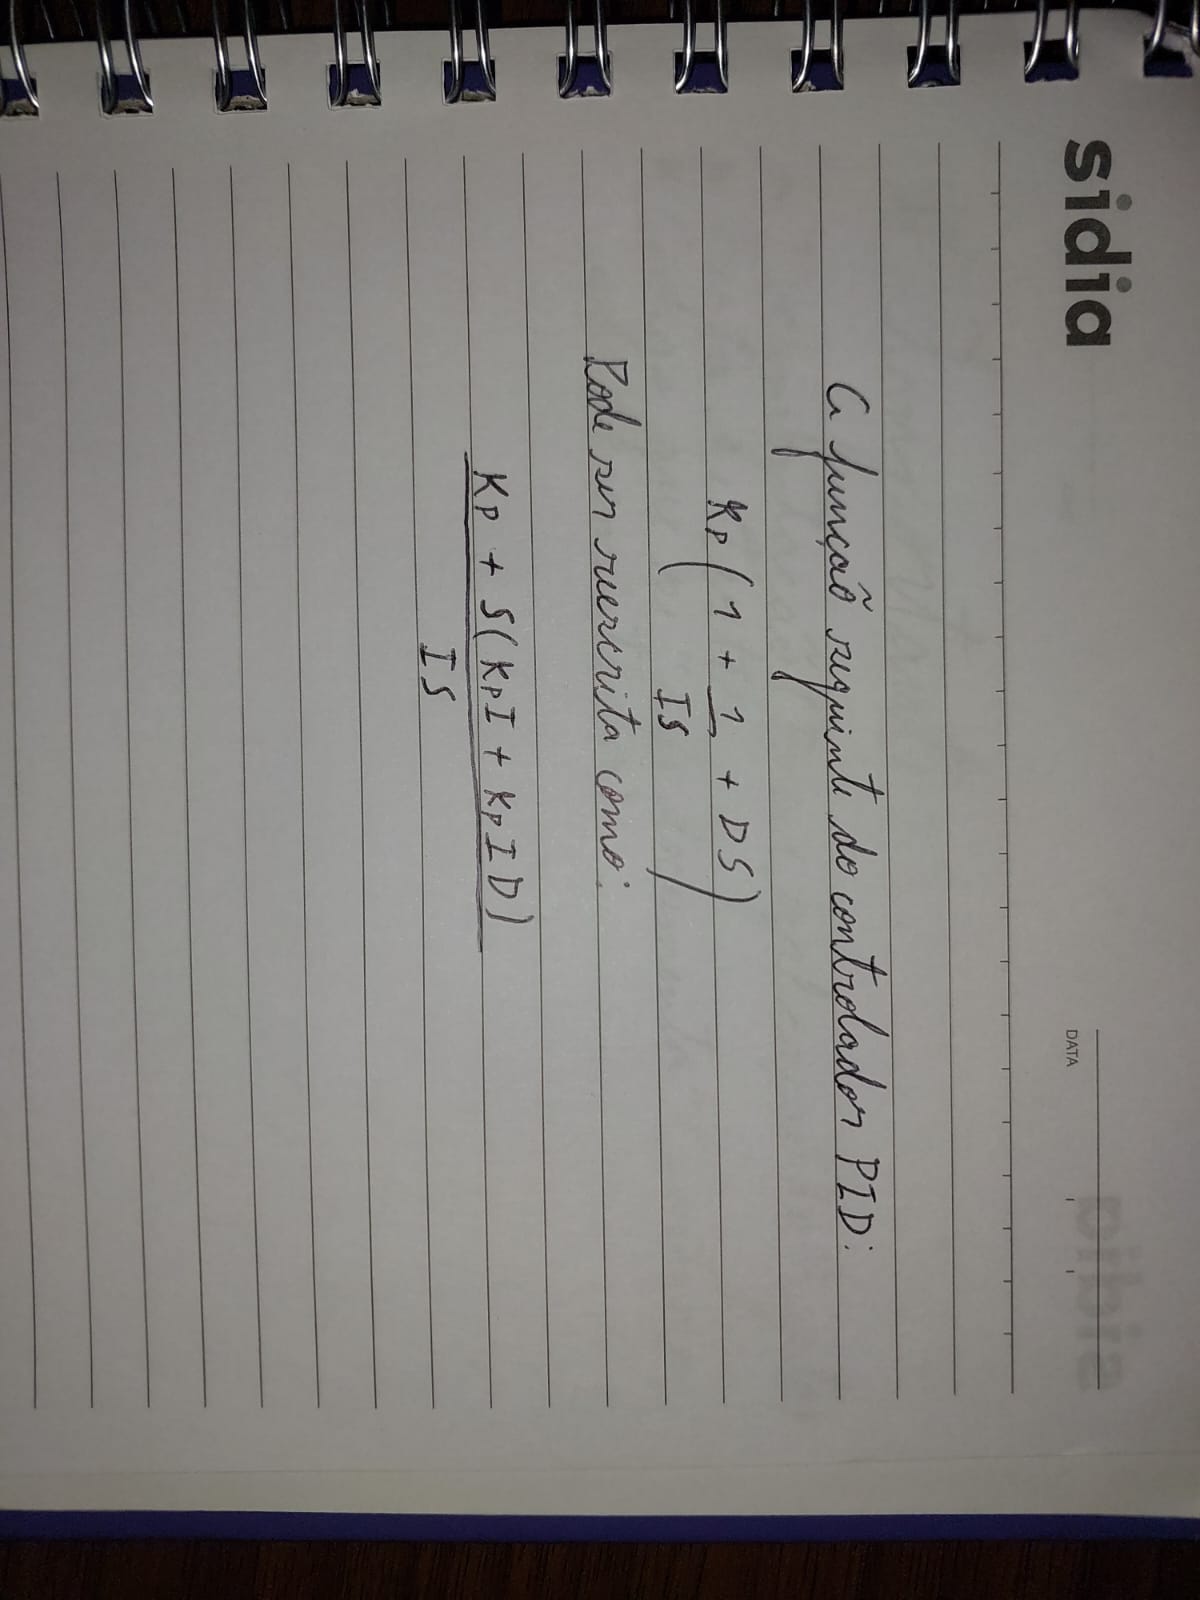 sidia
DATA
A função seguinte do controlador PID:
Kp (1 + 1/IS + DS)
Pode ser reescrita como:
Kp + S(KpI + KpID)
IS